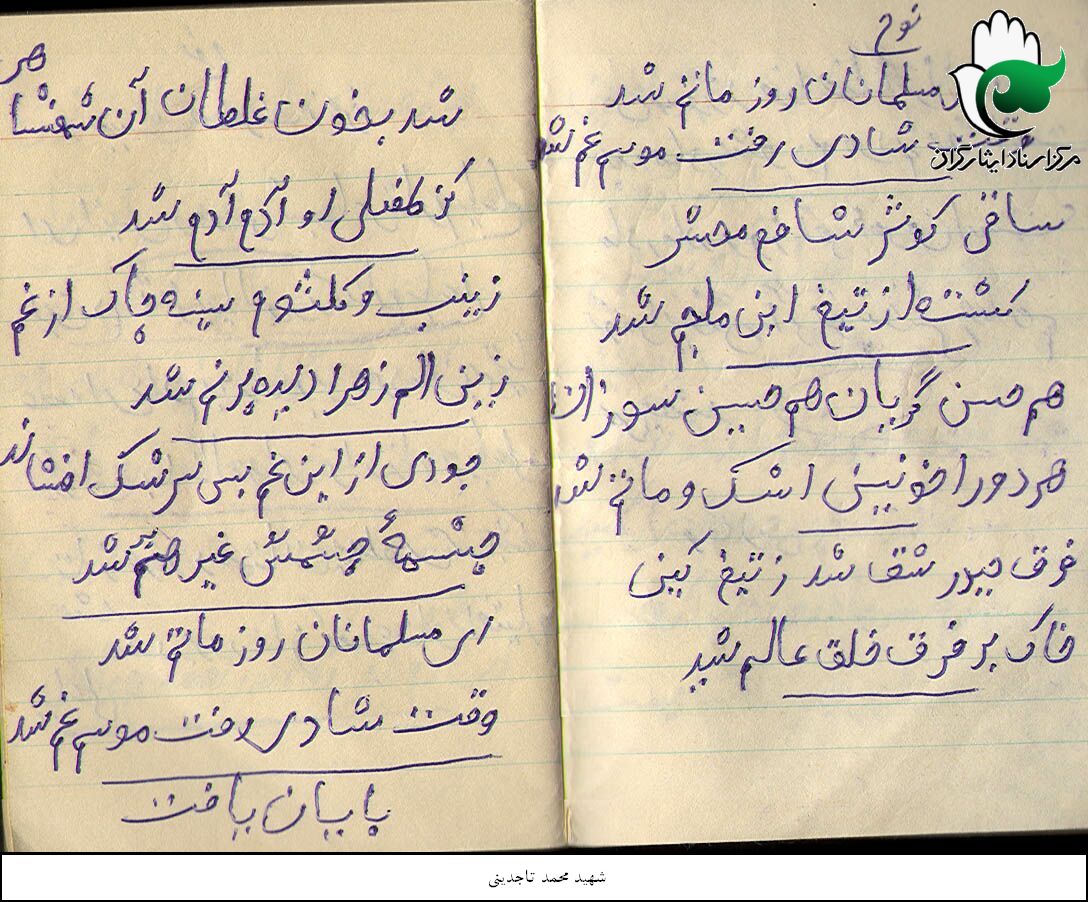 نوح
مسلمانان روز ماتم شد
شادی رفت موسم غم شد
ساقی کوثر شافع محشر
کشته از تیغ ابن ملجم شد
هم حسن گریان هم حسین سوزان
هر دو را خونین اشک و ماتم شد
فرق حیدر شق شد ز تیغ کین
خاک بر فرق خلق عالم شد
شد بخون غلطان آن شهنشاهر
کز طفیل او آدم آدم شد
زینب و کلثوم سینه چاک از غم
زین الم زهرا دیده پرنم شد
جودی از این غم بس سرشک افشاند
چشمهٔ چشمش غیر شد
ای مسلمانان روز ماتم شد
وقت شادی رفت موسم غم شد
پایان یافت
مرکز اسناد ایثارگران
شهید محمد تاجدینی